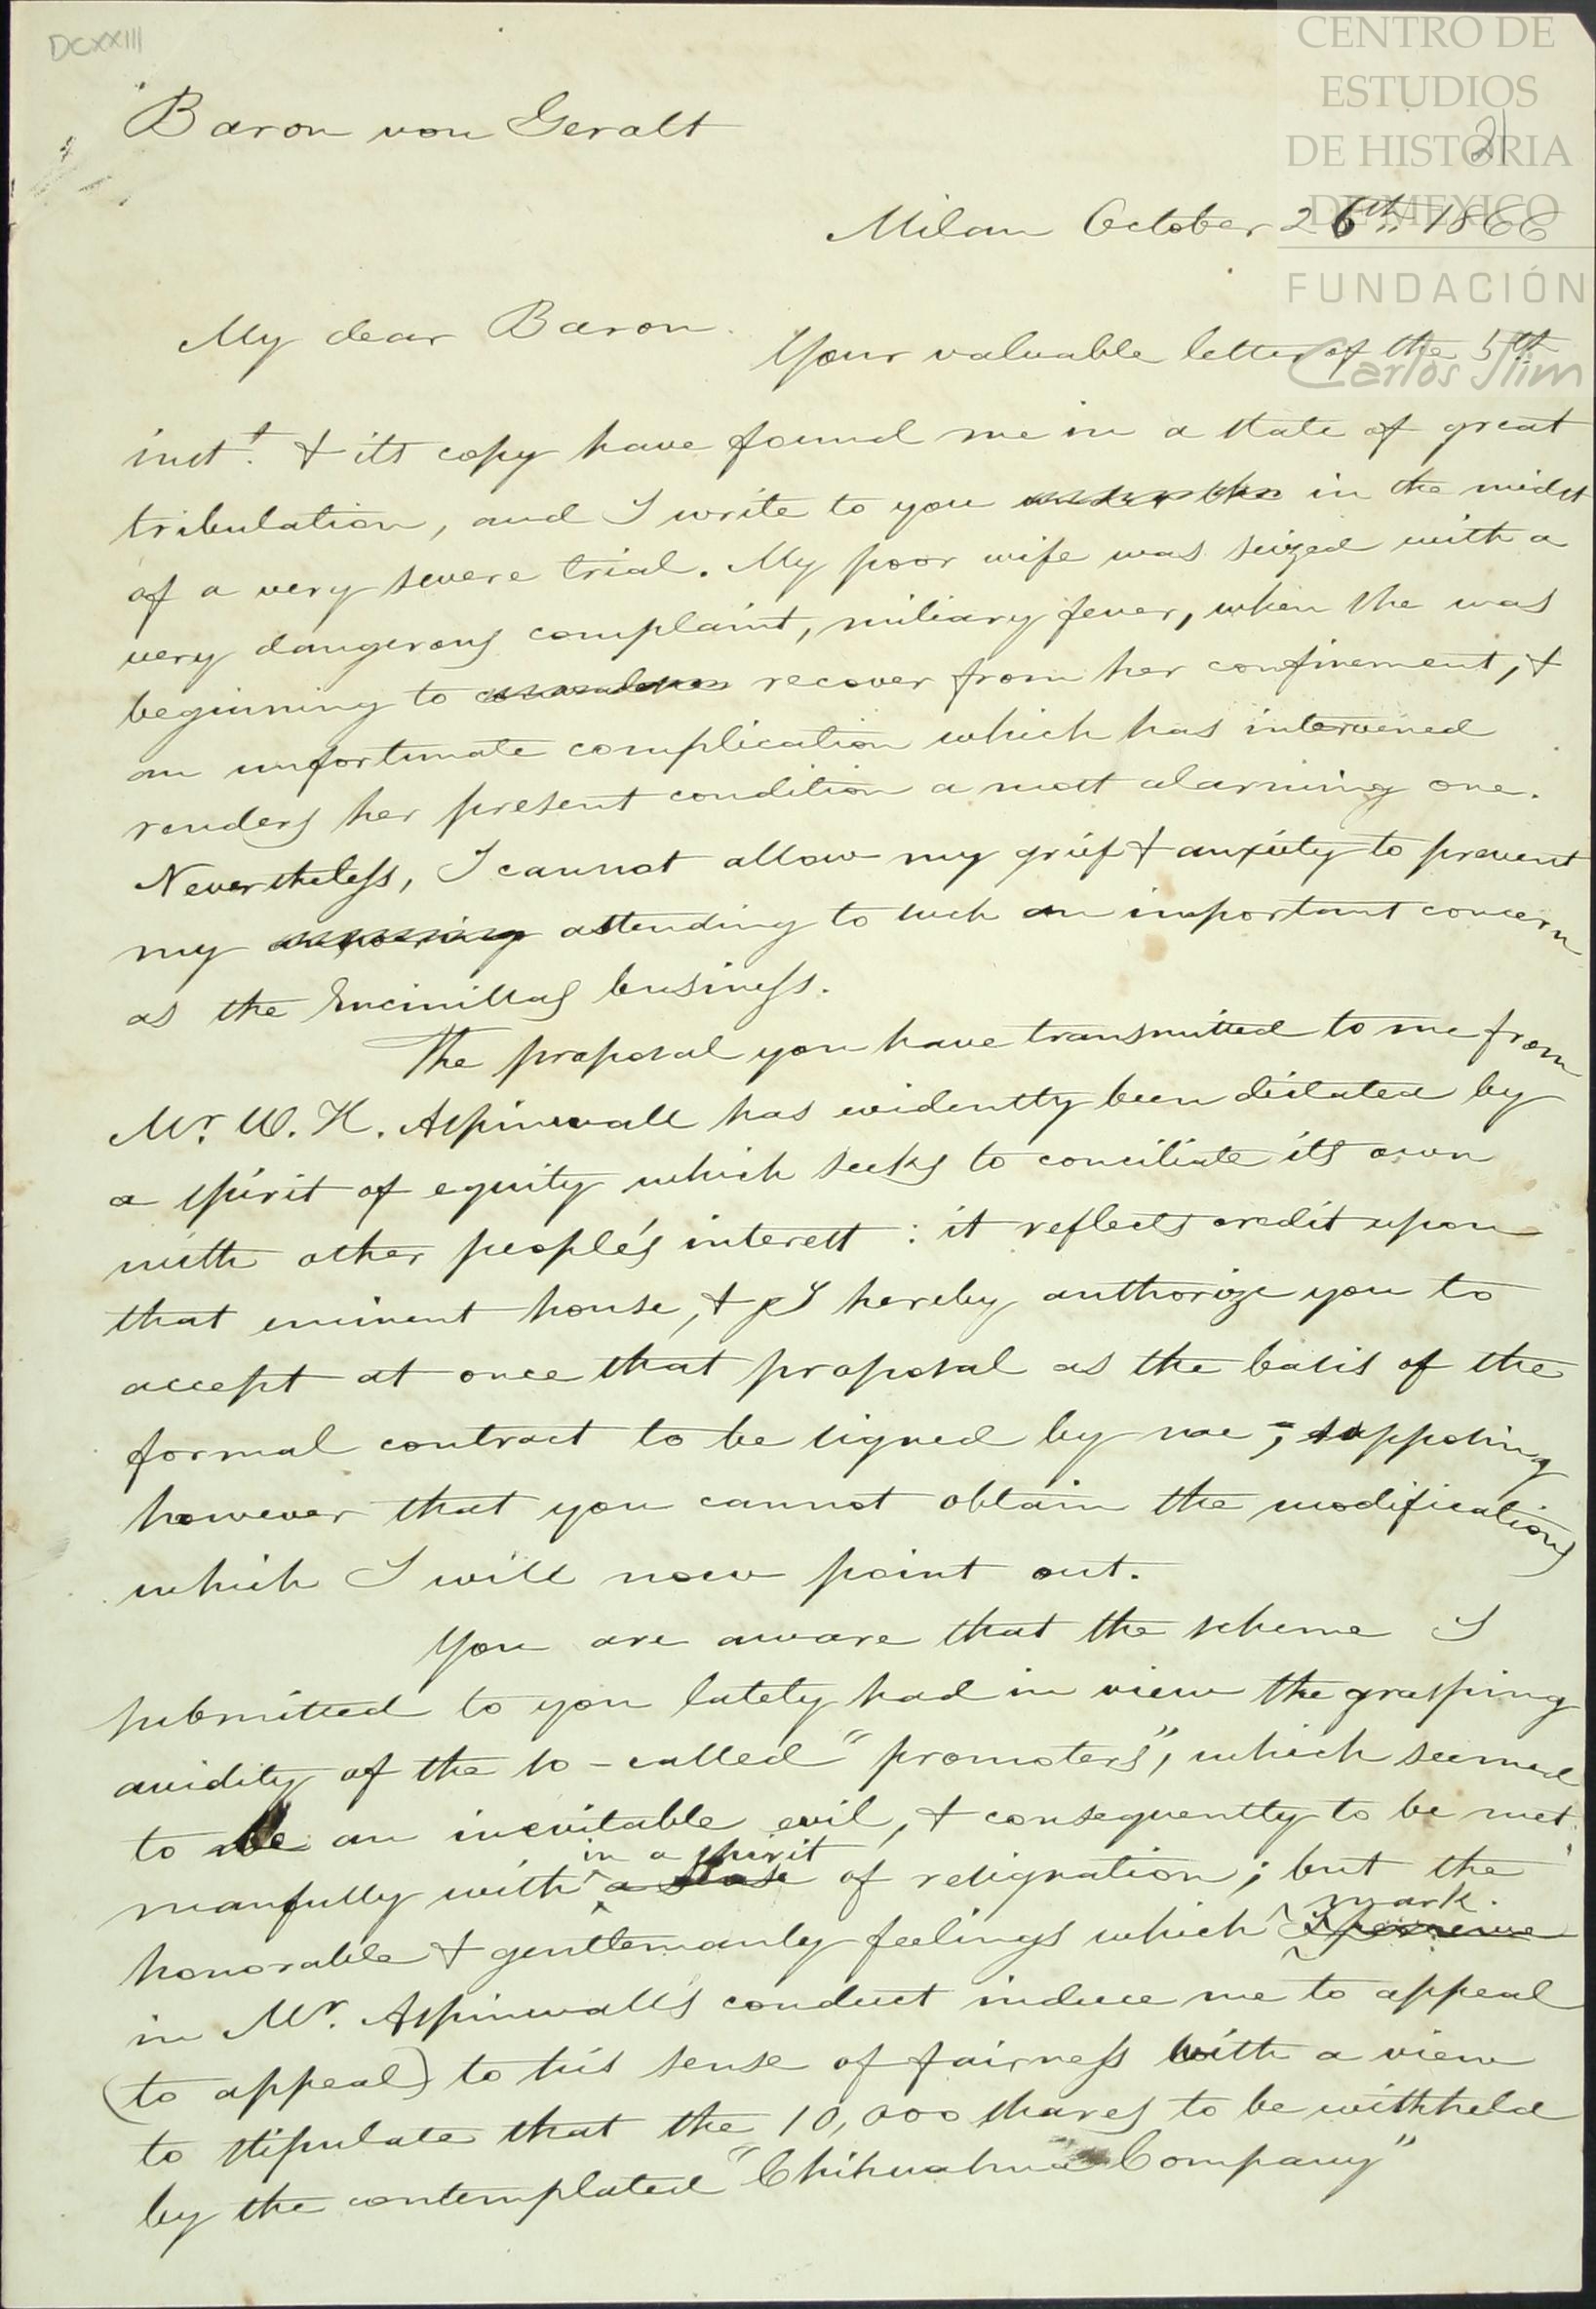 DCXXIII
CENTRO DE
ESTUDIOS
DE HISTORIA
DE MEXICO
FUNDACIÓN
Carlos Slim
21
Baron von Geralt
Milan October 26th 1866
My dear Baron.
Your valuable letter of the 5th
inst. & its copy have found me in a state of great
tribulation, and I write to you in the midst
of a very severe trial. My poor wife was seized with a
very dangerous complaint, miliary fever, when she was
beginning to recover from her confinement, &
an unfortunate complication which has intervened
renders her present condition a most alarming one.
Nevertheless, I cannot allow my grief & anxiety to prevent
my attending to such an important concern
as the Encinillas business.
The proposal you have transmitted to me from
Mr. W. H. Aspinwall has evidently been dictated by
a spirit of equity which seeks to conciliate its own
with other people's interest : it reflects credit upon
that eminent house, & I hereby authorize you to
accept at once that proposal as the basis of the
formal contract to be signed by me ; supposing
however that you cannot obtain the modifications
which I will now point out.
You are aware that the scheme I
submitted to you lately had in view the grasping
avidity of the so-called "promoters", which seemed
to be an inevitable evil, & consequently to be met
manfully with in a spirit of resignation ; but the
honorable & gentlemanly feelings which I mark
in Mr. Aspinwall's conduct induce me to appeal
(to appeal) to his sense of fairness with a view
to stipulate that the 10,000 shares to be withheld
by the contemplated "Chihuahua Company"